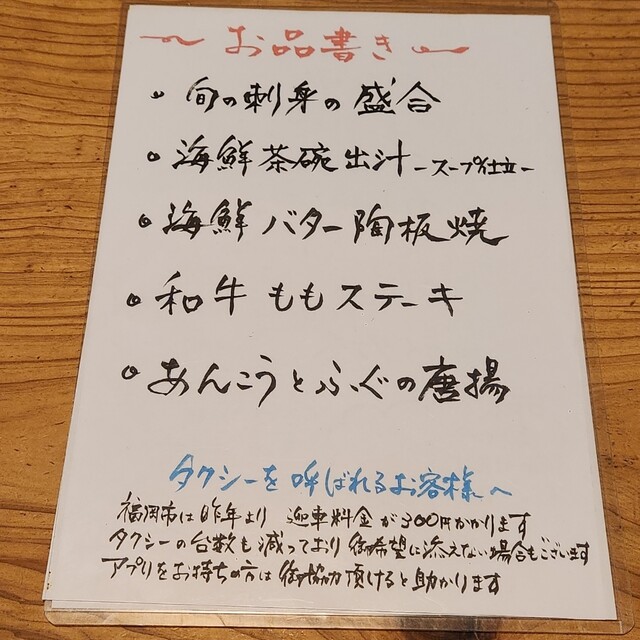 お品書き
旬の刺身の盛合
海鮮茶碗出汁 -スープ仕立-
海鮮バター陶板焼
和牛ももステーキ
あんこうとふぐの唐揚
タクシーを呼ばれるお客様へ
福岡市は昨年より 迎車料金が300円かかります
タクシーの台数も減っており御希望に添えない場合もございます
アプリをお持ちの方は御協力頂けると助かります